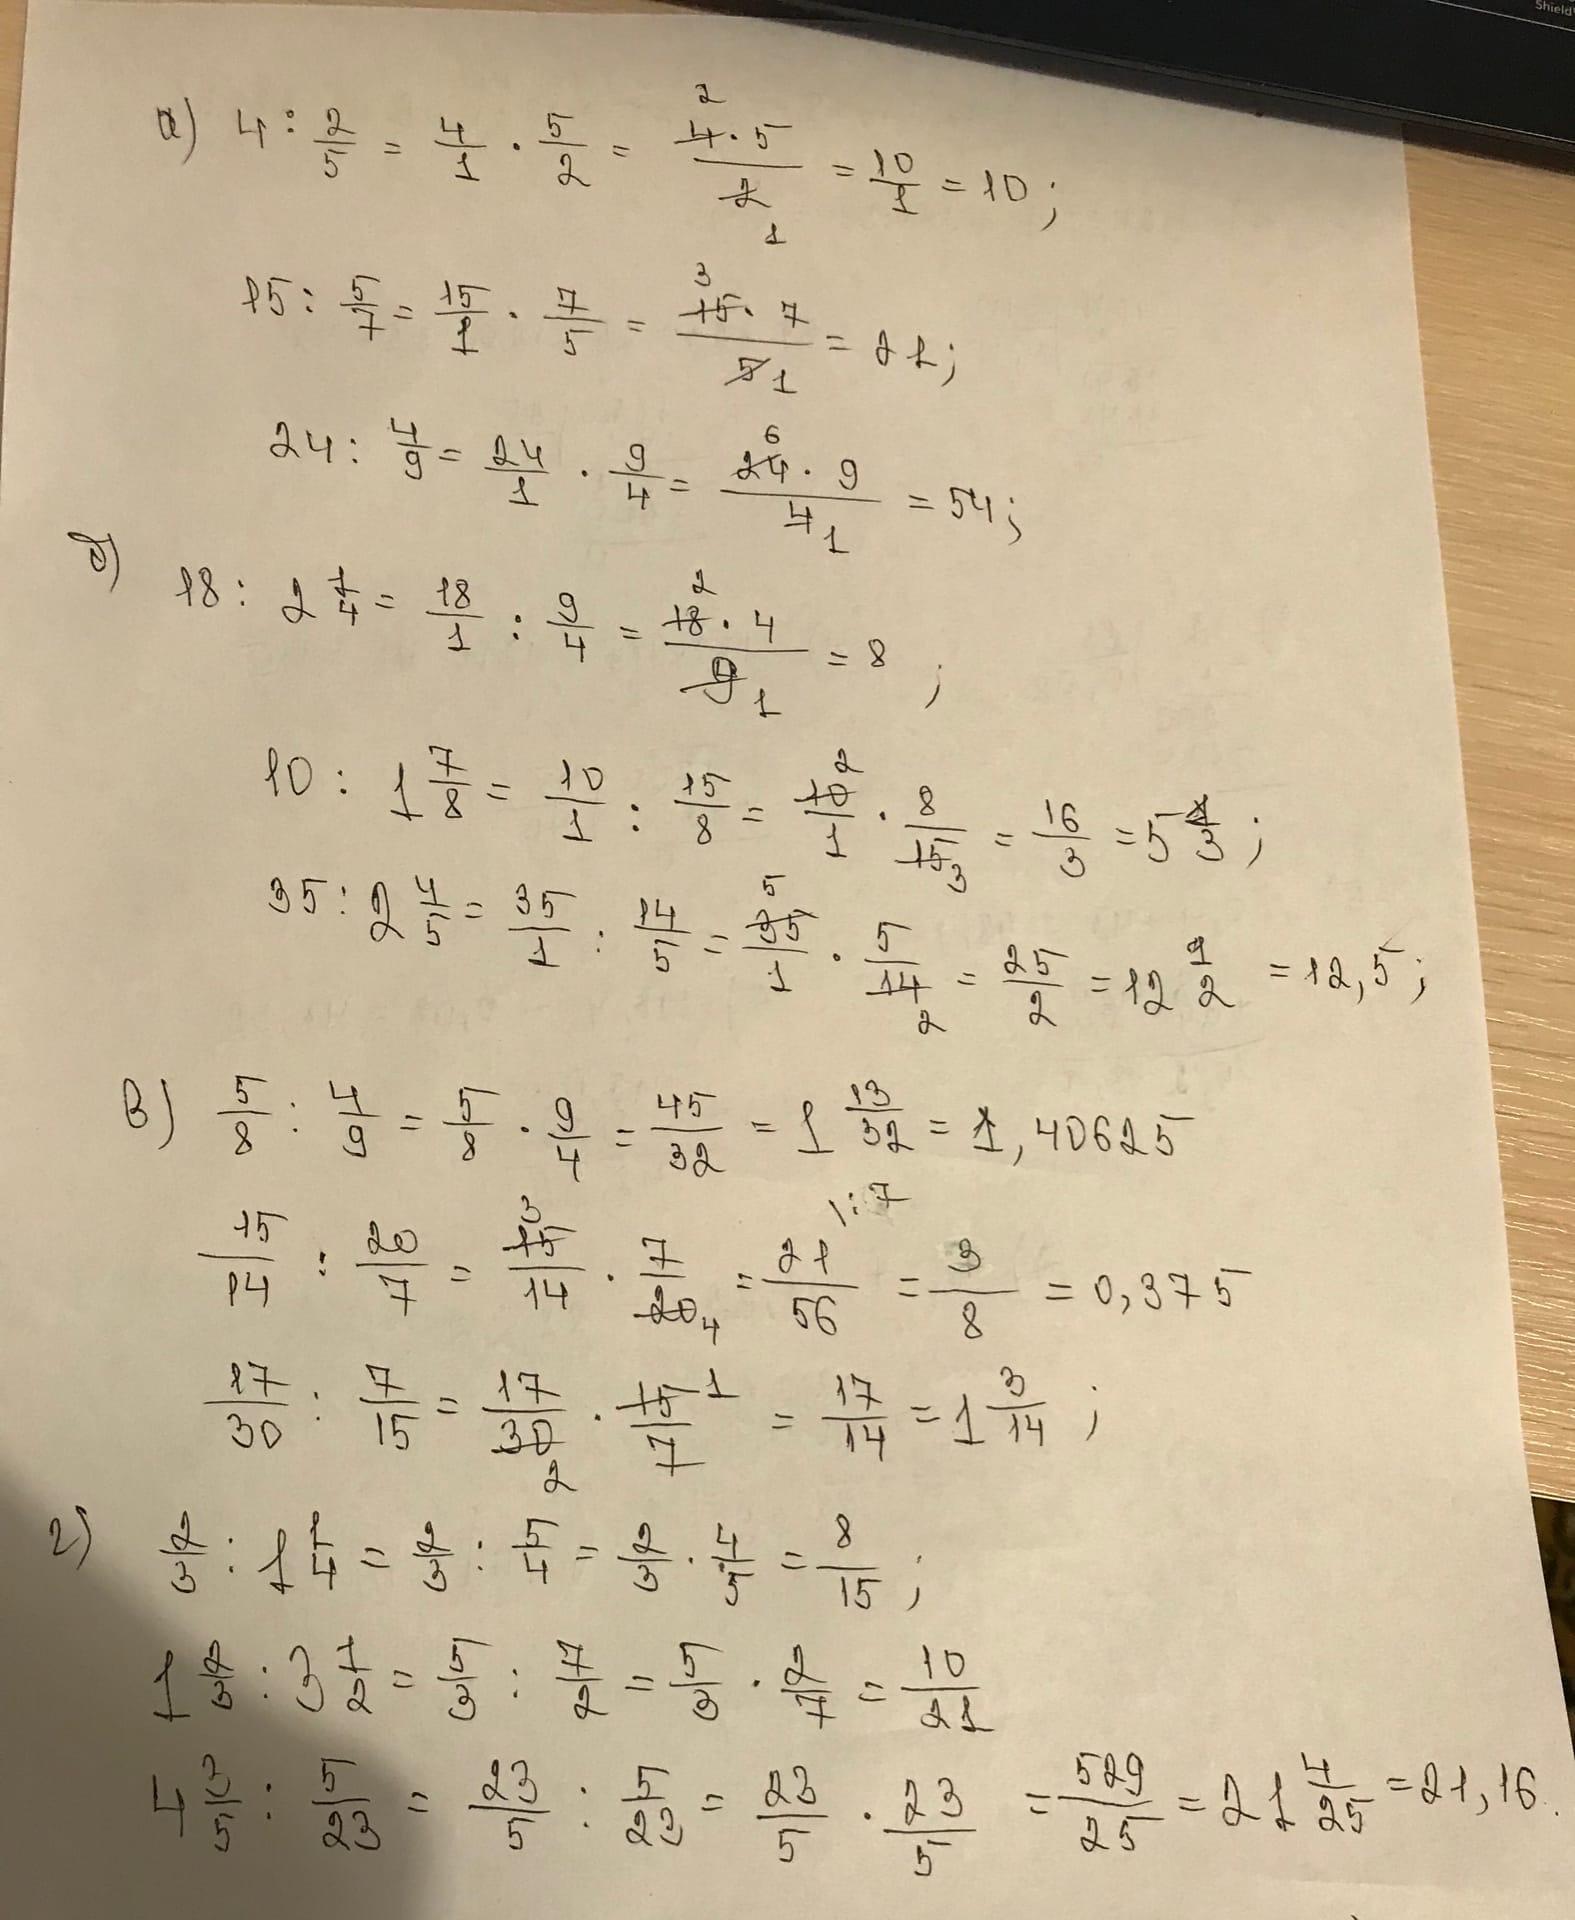 Shield
а) 4 : 2/5 = 4/1 · 5/2 = (4² · 5)/(2₁) = 10/1 = 10;
15 : 5/7 = 15/1 · 7/5 = (15³ · 7)/(5₁) = 21;
24 : 4/9 = 24/1 · 9/4 = (24⁶ · 9)/(4₁) = 54;
б) 18 : 2 1/4 = 18/1 : 9/4 = (18² · 4)/(9₁) = 8;
10 : 1 7/8 = 10/1 : 15/8 = 10²/1 · 8/15₃ = 16/3 = 5 1/3;
35 : 2 4/5 = 35/1 : 14/5 = 35⁵/1 · 5/14₂ = 25/2 = 12 1/2 = 12,5;
в) 5/8 : 4/9 = 5/8 · 9/4 = 45/32 = 1 13/32 = 1,40625
15/14 : 20/7 = 15³/14 · 7/20₄ = 21/56 \:7 = 3/8 = 0,375
17/30 : 7/15 = 17/30₂ · 15¹/7 = 17/14 = 1 3/14;
г) 2/3 : 1 1/4 = 2/3 : 5/4 = 2/3 · 4/5 = 8/15;
1 2/3 : 3 1/2 = 5/3 : 7/2 = 5/3 · 2/7 = 10/21
4 3/5 : 5/23 = 23/5 : 5/23 = 23/5 · 23/5 = 529/25 = 21 4/25 = 21,16.